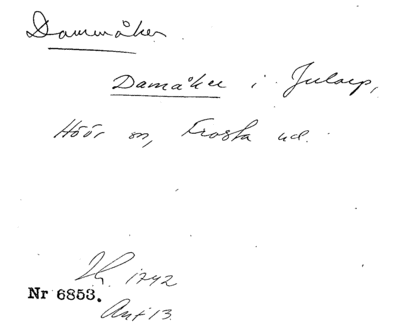 Dammåker
Damåker i Jularp,
Höör sn, Frosta hd.
1742
Nr 6853.
Ant 13